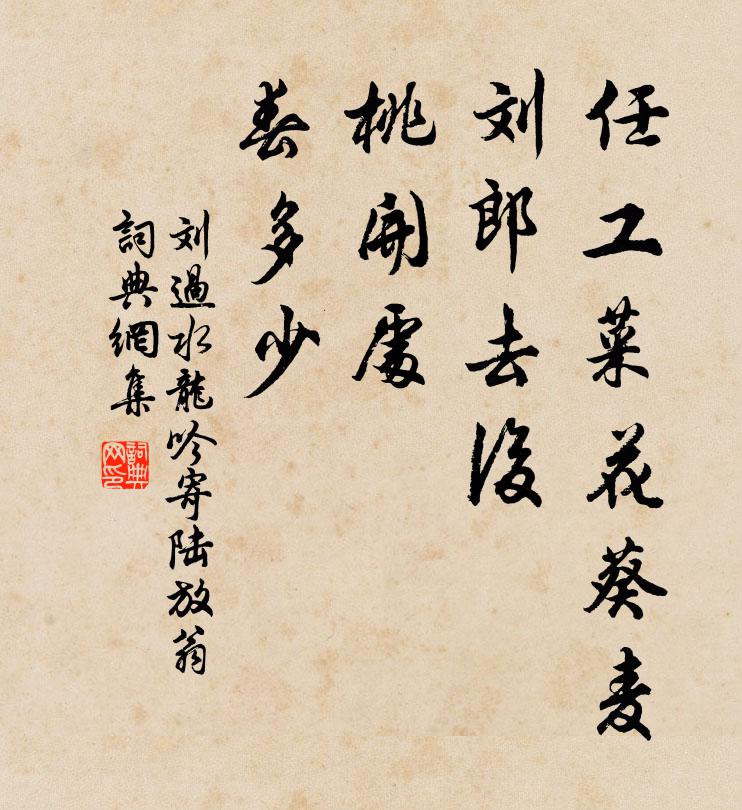 任工菜花葵麦
刘郎去後
桃開處
春多少
刘過水龍吟寄陆放翁
詞典網集
詞典网印